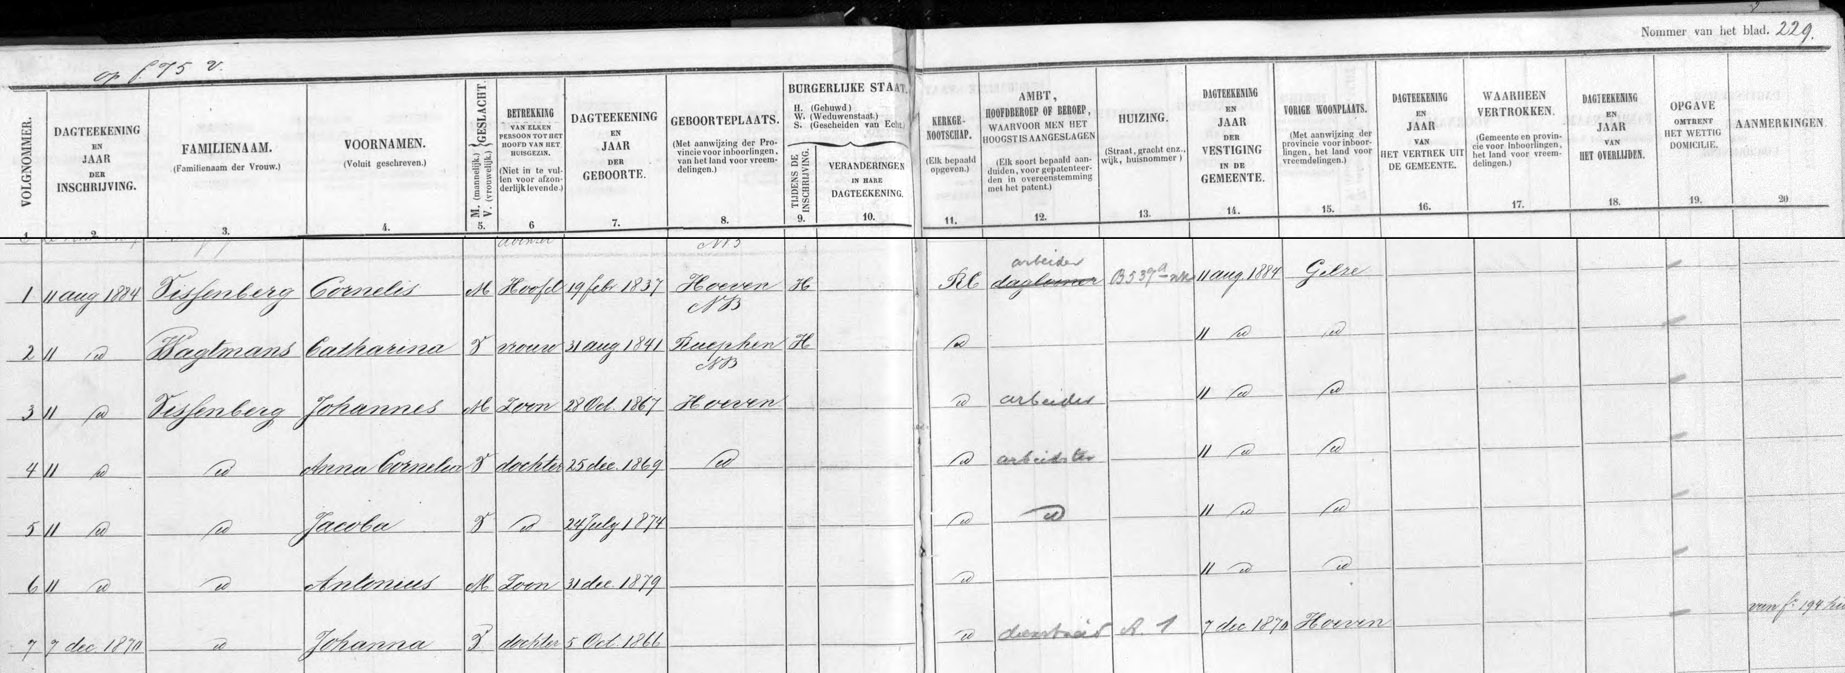 Nommer van het blad. 229.
op f. 75 v.
VOLGNOMMER.
1.
DAGTEEKENING
EN
JAAR
DER
INSCHRIJVING.
2.
FAMILIENAAM.
(Familienaam der Vrouw.)
3.
VOORNAMEN.
(Voluit geschreven.)
4.
GESLACHT.
M. (mannelijk.)
V. (vrouwelijk.)
5.
BETREKKING
VAN ELKEN
PERSOON TOT HET
HOOFD VAN HET
HUISGEZIN.
(Niet in te vul-
len voor afzon-
derlijk levende.)
6
DAGTEEKENING
EN
JAAR
DER
GEBOORTE.
7.
GEBOORTEPLAATS.
(Met aanwijzing der Pro-
vincie voor inboorlingen,
van het land voor vreem-
delingen.)
8.
BURGERLIJKE STAAT.
H. (Gehuwd)
W. (Weduwenstaat.)
S. (Gescheiden van Echt.)
TIJDENS DE
INSCHRIJVING.
9.
VERANDERINGEN
IN HARE
DAGTEEKENING.
10.
KERKGE-
NOOTSCHAP.
(Elk bepaald
opgeven.)
11.
AMBT,
HOOFDBEROEP OF BEROEP,
WAARVOOR MEN HET
HOOGST IS AANGESLAGEN
(Elk soort bepaald aan-
duiden, voor gepatenteer-
den in overeenstemming
met het patent.)
12.
HUIZING.
(Straat, gracht enz.,
wijk, huisnommer)
13.
DAGTEEKENING
EN
JAAR
DER
VESTIGING
IN DE
GEMEENTE.
14.
VORIGE WOONPLAATS.
(Met aanwijzing der
provincie voor inboor-
lingen, het land voor
vreemdelingen.)
15.
DAGTEEKENING
EN
JAAR
VAN
HET VERTREK UIT
DE GEMEENTE.
16.
WAARHEEN
VERTROKKEN.
(Gemeente en provin-
cie voor inboorlingen,
het land voor vreem-
delingen.)
17.
DAGTEEKENING
EN
JAAR
VAN
HET OVERLIJDEN.
18.
OPGAVE
OMTRENT
HET WETTIG
DOMICILIE.
19.
AANMERKINGEN.
20
dochter NB
arbeider
1 11 aug 1884 Tissenberg Cornelis M Hoofd 19 febr 1837 Hoeven H RC daglooner B539a 11 aug. 1884 Gilze
NB
2 11 id Bagtmans Catharina V vrouw 31 aug 1841 Rucphen H id 11 id id
NB
3 11 id Tissenberg Johannes M Zoon 28 Oct. 1867 Hoeven id arbeider 11 id id
4 11 id id Anna Cornelia V dochter 25 dec. 1869 id id arbeidster 11 id id
5 11 id id Jacoba V id 24 July 1874 id id 11 id id
6 11 id id Antonius M Zoon 31 dec. 1879 id 11 id id
van fo 194
7 7 dec 1870 id Johanna V dochter 5 Oct. 1866 id dienstmeid A 1 7 dec 1870 Hoeven